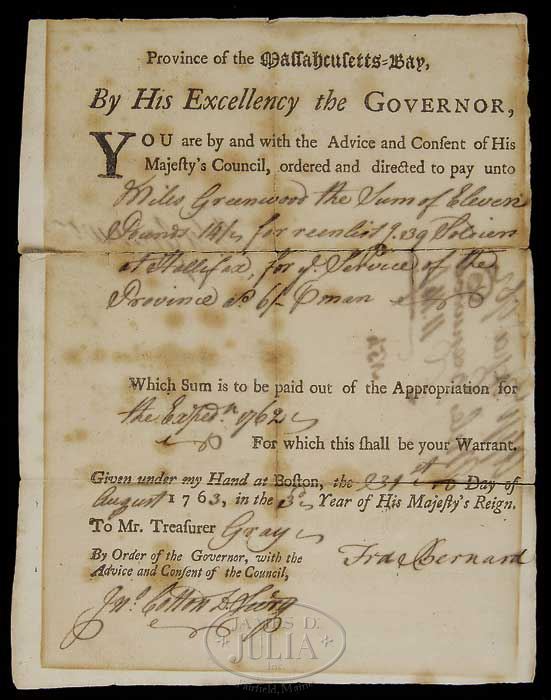 Province of the Massahcusetts-Bay,
By His Excellency the GOVERNOR,
YOU are by and with the Advice and Consent of His
Majesty's Council, ordered and directed to pay unto
Miles Greenwood the Sum of Eleven
Pounds 14/ for reenlistg. 39 Soldiers
at Hallifax, for ye. Service of the
Province @ 6/ P man
Which Sum is to be paid out of the Appropriation for
the Expedn. 1762
For which this shall be your Warrant.
Given under my Hand at Boston, the 31st Day of
August 1763, in the 3d Year of His Majesty's Reign.
To Mr. Treasurer Gray
By Order of the Governor, with the
Advice and Consent of the Council,
Fra Bernard
Jno. Cotton D. Secry
JAMES D.
JULIA
Inc.
Fairfield, Maine